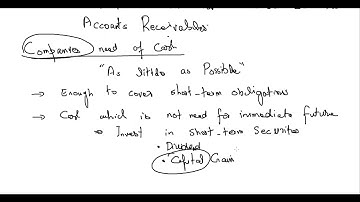 Accounts Receivables
Companies need of Cash
"As little as Possible"
→ Enough to cover short-term obligations
→ Cash which is not need for immediate future
Invest in short-term Securities
• Dividend
• Capital Gain